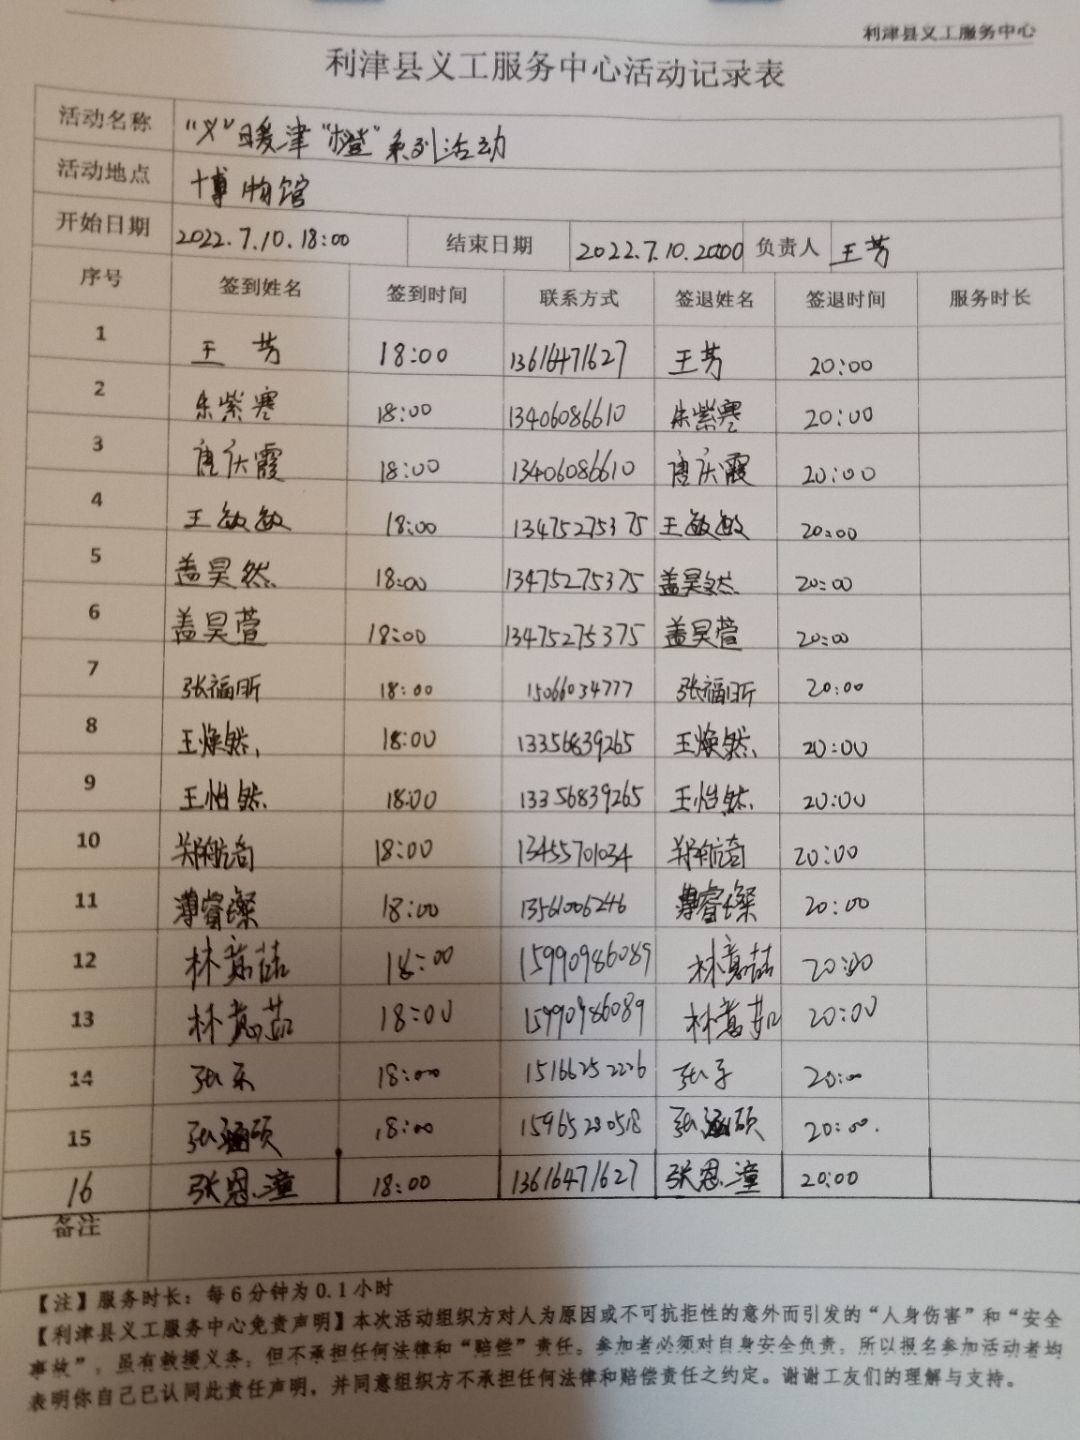 利津县义工服务中心
利津县义工服务中心活动记录表
活动名称 “义”暖津“橙”系列活动
活动地点 博物馆
开始日期 2022.7.10.18:00 结束日期 2022.7.10.20:00 负责人 王芳
序号 签到姓名 签到时间 联系方式 签退姓名 签退时间 服务时长
1 王芳 18:00 13616471627 王芳 20:00
2 朱紫骞 18:00 13406086610 朱紫骞 20:00
3 唐庆霞 18:00 13406086610 唐庆霞 20:00
4 王敏敏 18:00 13475275375 王敏敏 20:00
5 盖昊然 18:00 13475275375 盖昊然 20:00
6 盖昊萱 18:00 13475275375 盖昊萱 20:00
7 张福昕 18:00 15066034777 张福昕 20:00
8 王焕然 18:00 13356839265 王焕然 20:00
9 王怡然 18:00 13356839265 王怡然 20:00
10 郑航奇 18:00 13455701034 郑航奇 20:00
11 薄睿璨 18:00 13561006246 薄睿璨 20:00
12 林意喆 18:00 15990986089 林意喆 20:00
13 林意茹 18:00 15990986089 林意茹 20:00
14 18:00 15166252226 20:00
15 张涵硕 18:00 15965280518 张涵硕 20:00.
16 张恩潼 18:00 13616471627 张恩潼 20:00
备注
【注】服务时长：每6分钟为0.1小时
【利津县义工服务中心免责声明】本次活动组织方对人为原因或不可抗拒性的意外而引发的“人身伤害”和“安全
事故”，虽有救援义务，但不承担任何法律和“赔偿”责任。参加者必须对自身安全负责，所以报名参加活动者均
表明你自己已认同此责任声明，并同意组织方不承担任何法律和赔偿责任之约定。谢谢工友们的理解与支持。